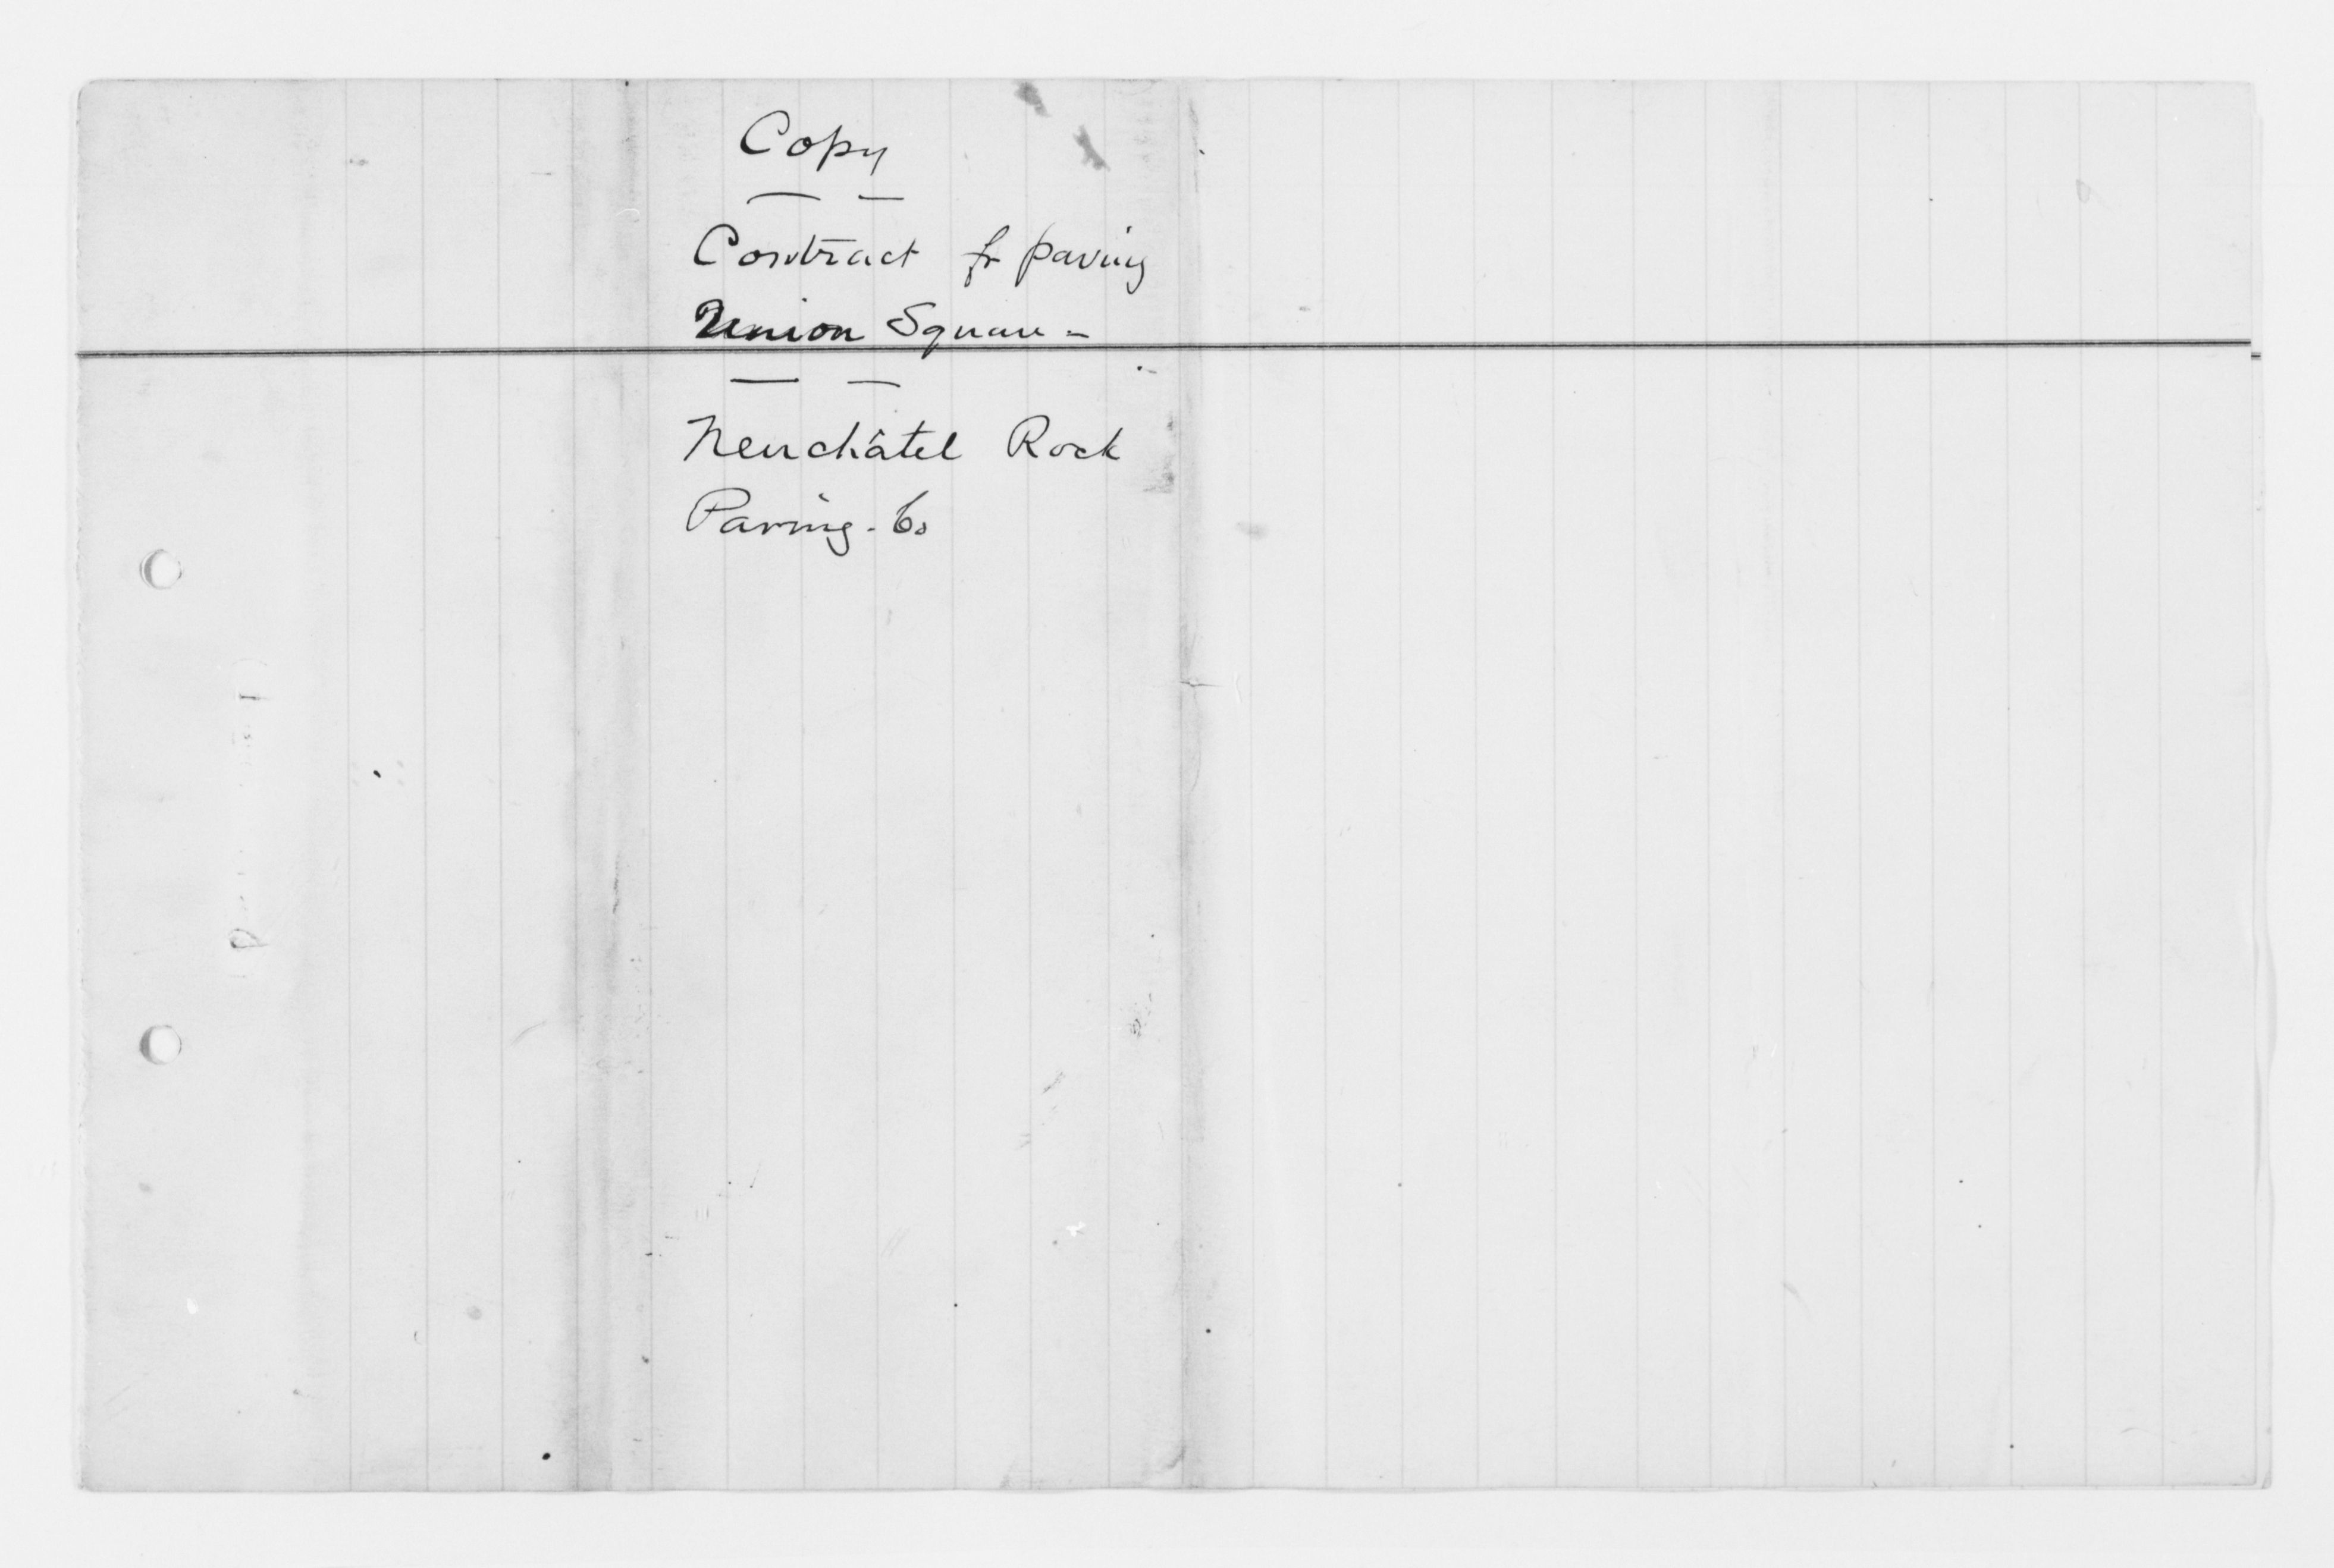 Copy
Contract fr paving
Union Square -
Neuchâtel Rock
Paving. Co